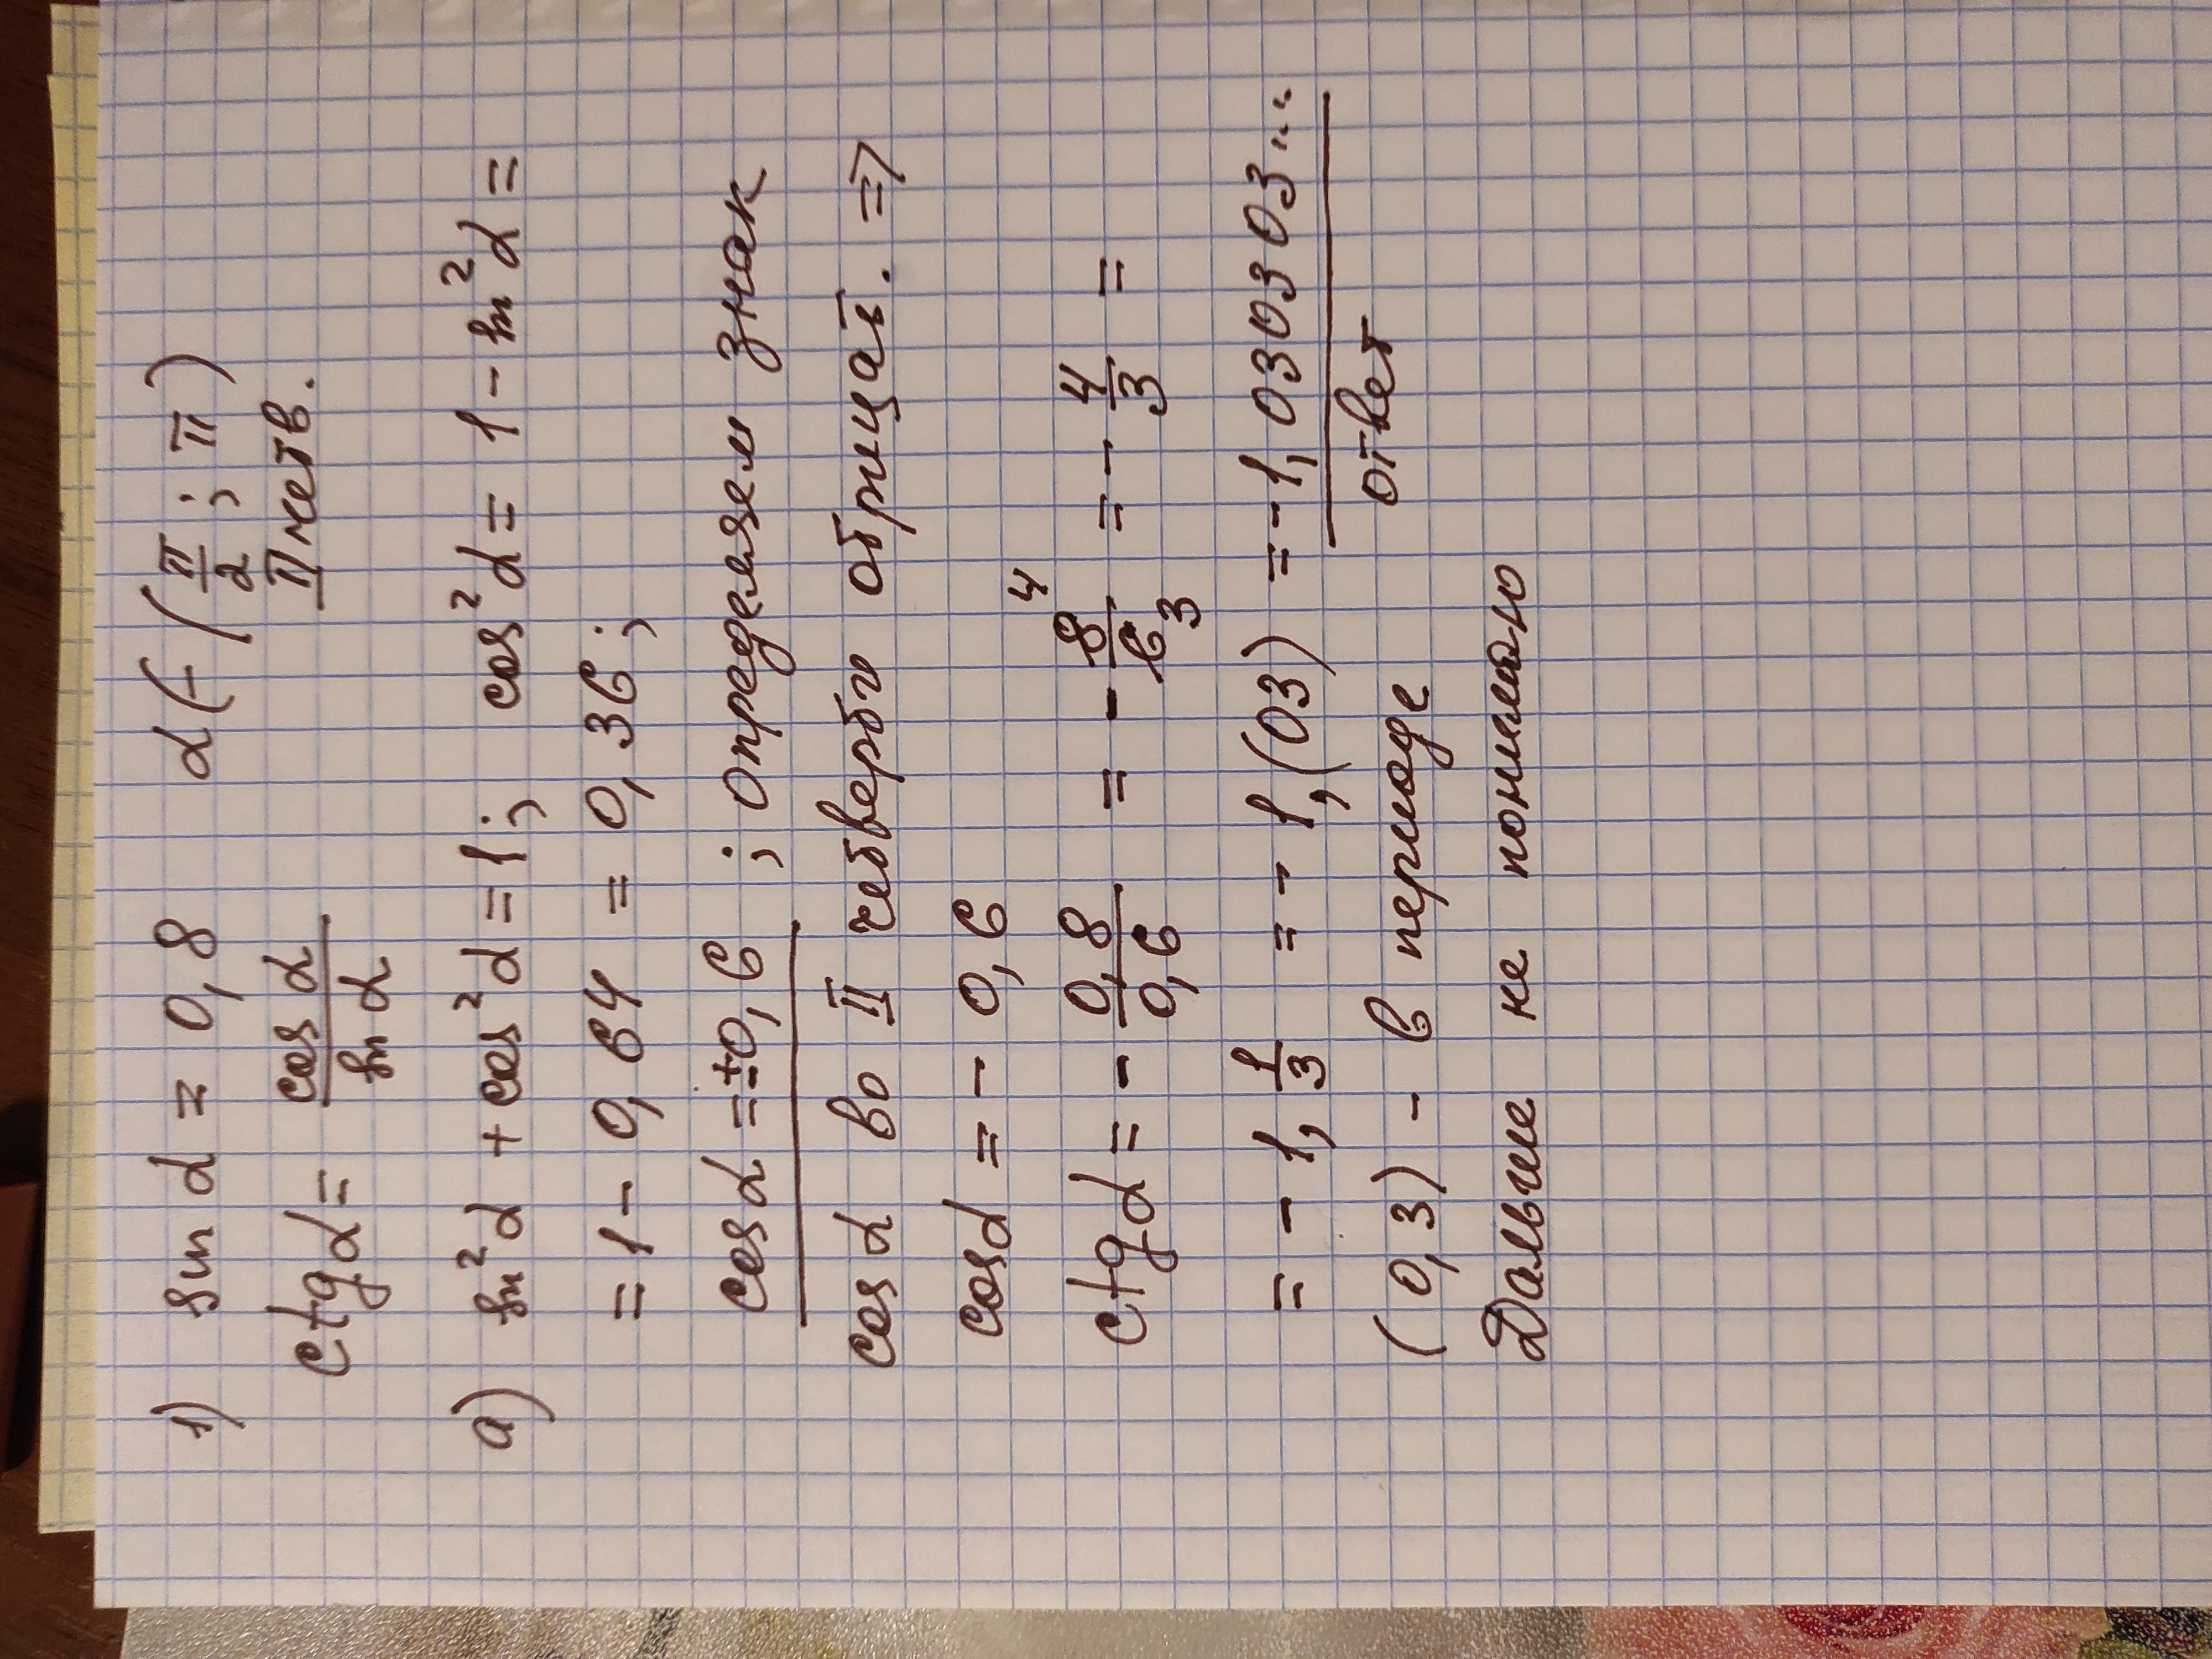 1) sin α = 0,8 α (- (π/2 ; π)
ctg α = cos α / sin α II четв.
а) sin²α + cos²α = 1; cos²α = 1 - sin²α =
= 1 - 0,64 = 0,36;
cos α = ±0,6 ; определяем знак
cos α во II четверти отрицат. =>
cos α = - 0,6
ctg α = - 0,8/0,6 = - 8/6 4 3 = - 4/3 =
= - 1, 1/3 = - 1,(03) = - 1,030303...
(0,3) - в периоде ответ
Дальше не понимаю